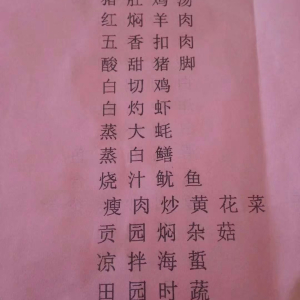 猪肚鸡汤
红焖羊肉
五香扣肉
酸甜猪脚
白切鸡
白灼虾
蒸大蚝
蒸白鳝
烧汁鱿鱼
瘦肉炒黄花菜
贡园焖杂菇
凉拌海蜇
田园时蔬